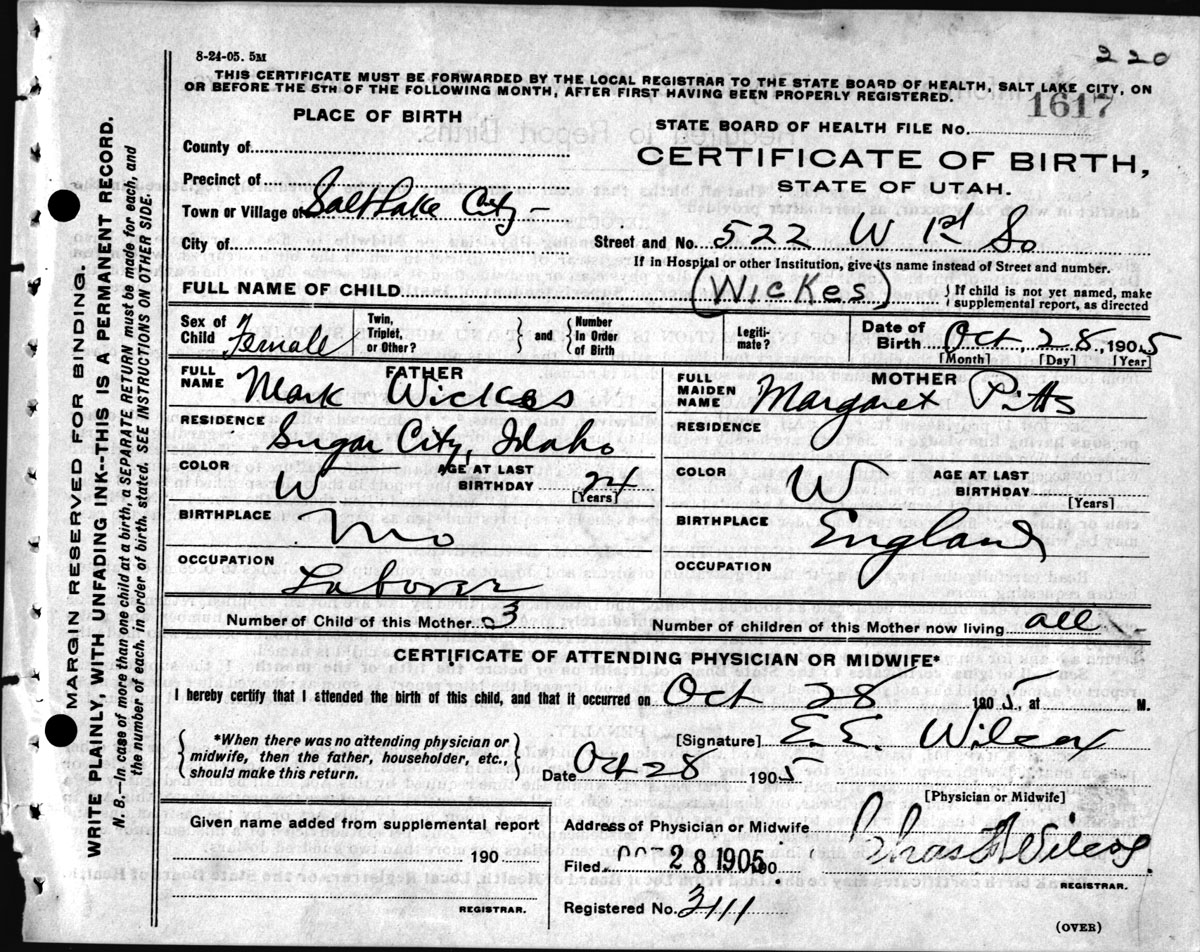 8-24-05. 5M
220
THIS CERTIFICATE MUST BE FORWARDED BY THE LOCAL REGISTRAR TO THE STATE BOARD OF HEALTH, SALT LAKE CITY, ON
OR BEFORE THE 5TH OF THE FOLLOWING MONTH, AFTER FIRST HAVING BEEN PROPERLY REGISTERED.
PLACE OF BIRTH
STATE BOARD OF HEALTH FILE No. 1617
County of
CERTIFICATE OF BIRTH,
STATE OF UTAH.
Precinct of
Town or Village of Salt Lake City -
City of
Street and No. 522 W 1st So
If in Hospital or other Institution, give its name instead of Street and number.
FULL NAME OF CHILD (Wickes) } If child is not yet named, make
supplemental report, as directed
Sex of
Child Female
Twin,
Triplet,
or Other? } and { Number
In Order
of Birth
Legiti-
mate?
Date of
Birth Oct 28, 1905
[Month] [Day] [Year]
FATHER
FULL
NAME Mark Wickes
RESIDENCE
Sugar City, Idaho
COLOR W
AGE AT LAST
BIRTHDAY 24
[Years]
BIRTHPLACE
Mo
OCCUPATION
Laborer
MOTHER
FULL
MAIDEN
NAME Margaret Pitts
RESIDENCE
COLOR W
AGE AT LAST
BIRTHDAY
[Years]
BIRTHPLACE
England
OCCUPATION
Number of Child of this Mother 3
Number of children of this Mother now living all
CERTIFICATE OF ATTENDING PHYSICIAN OR MIDWIFE*
I hereby certify that I attended the birth of this child, and that it occurred on Oct 28 1905, at M.
{ *When there was no attending physician or
midwife, then the father, householder, etc.,
should make this return. }
[Signature] E. E. Wilcox
Date Oct 28 1905
[Physician or Midwife]
Given name added from supplemental report
190
REGISTRAR.
Address of Physician or Midwife
Filed 28 1905 190
Wilcox
REGISTRAR.
Registered No. 2111
(OVER)
MARGIN RESERVED FOR BINDING.
WRITE PLAINLY, WITH UNFADING INK--THIS IS A PERMANENT RECORD.
N. B.—In case of more than one child at a birth, a SEPARATE RETURN must be made for each, and
the number of each, in order of birth, stated. SEE INSTRUCTIONS ON OTHER SIDE.